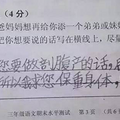 （4 分）
爸妈妈想再给你添一个弟弟或妹
把你想要说的话写在横线上，尽量
您要做剖腹产的话，
所以需求您保重身体，
三年级语文期末水平测试 第5页（共6